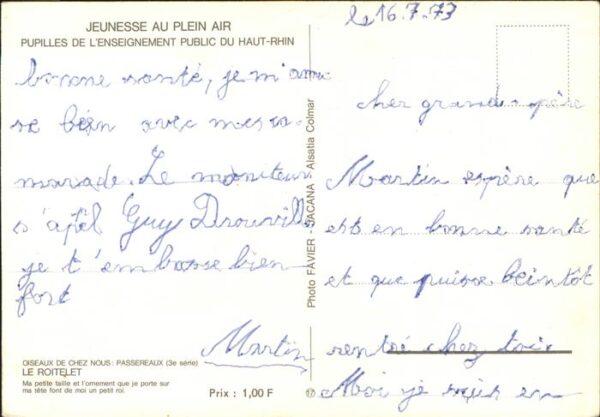 JEUNESSE AU PLEIN AIR
PUPILLES DE L'ENSEIGNEMENT PUBLIC DU HAUT-RHIN
le 16.7.73
cher grand-père
Martin espère que
est en bonne santé
et que puisse beintôt
rentré chez toi
Moi je suis en
bonne santé, je m'amu
se bien avec mes ca-
marade. Le moniteur
s'apel Guy Drouville
je t'embasse bien
fort
Martin
Photo FAVIER - SACANA - Alsatia Colmar
OISEAUX DE CHEZ NOUS : PASSEREAUX (3e série)
LE ROITELET
Ma petite taille et l'ornement que je porte sur
ma tête font de moi un petit roi.
Prix : 1,00 F